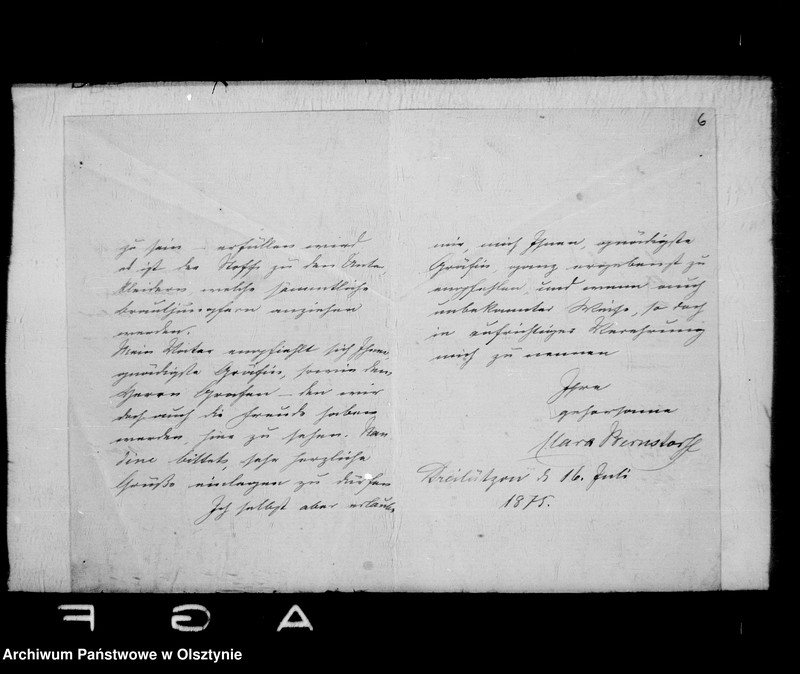 6
zu sein – erfüllen wird
es ist der Stoff zu den Unter
kleidern welche sämmtliche
Brautjungfern anziehen
werden.
Mein Vater empfiehlt sich Ihnen,
gnädigste Gräfin, sowie dem
Herrn Grafen – den wir
doch auch die Freude haben
werden, hier zu sehen.
bittet, sehr herzliche
Grüße einlegen zu dürfen
Ich selbst aber erlaube
mir, mich Ihnen, gnädigste
Gräfin, ganz ergebenst zu
empfehlen, und wenn auch
unbekannter Weise, so doch
in aufrichtiger Verehrung
mich zu nennen
Ihre
gehorsame
Clara Bernstorff
Dreilützow d. 16. Juli
1875.
A G F
Archiwum Państwowe w Olsztynie